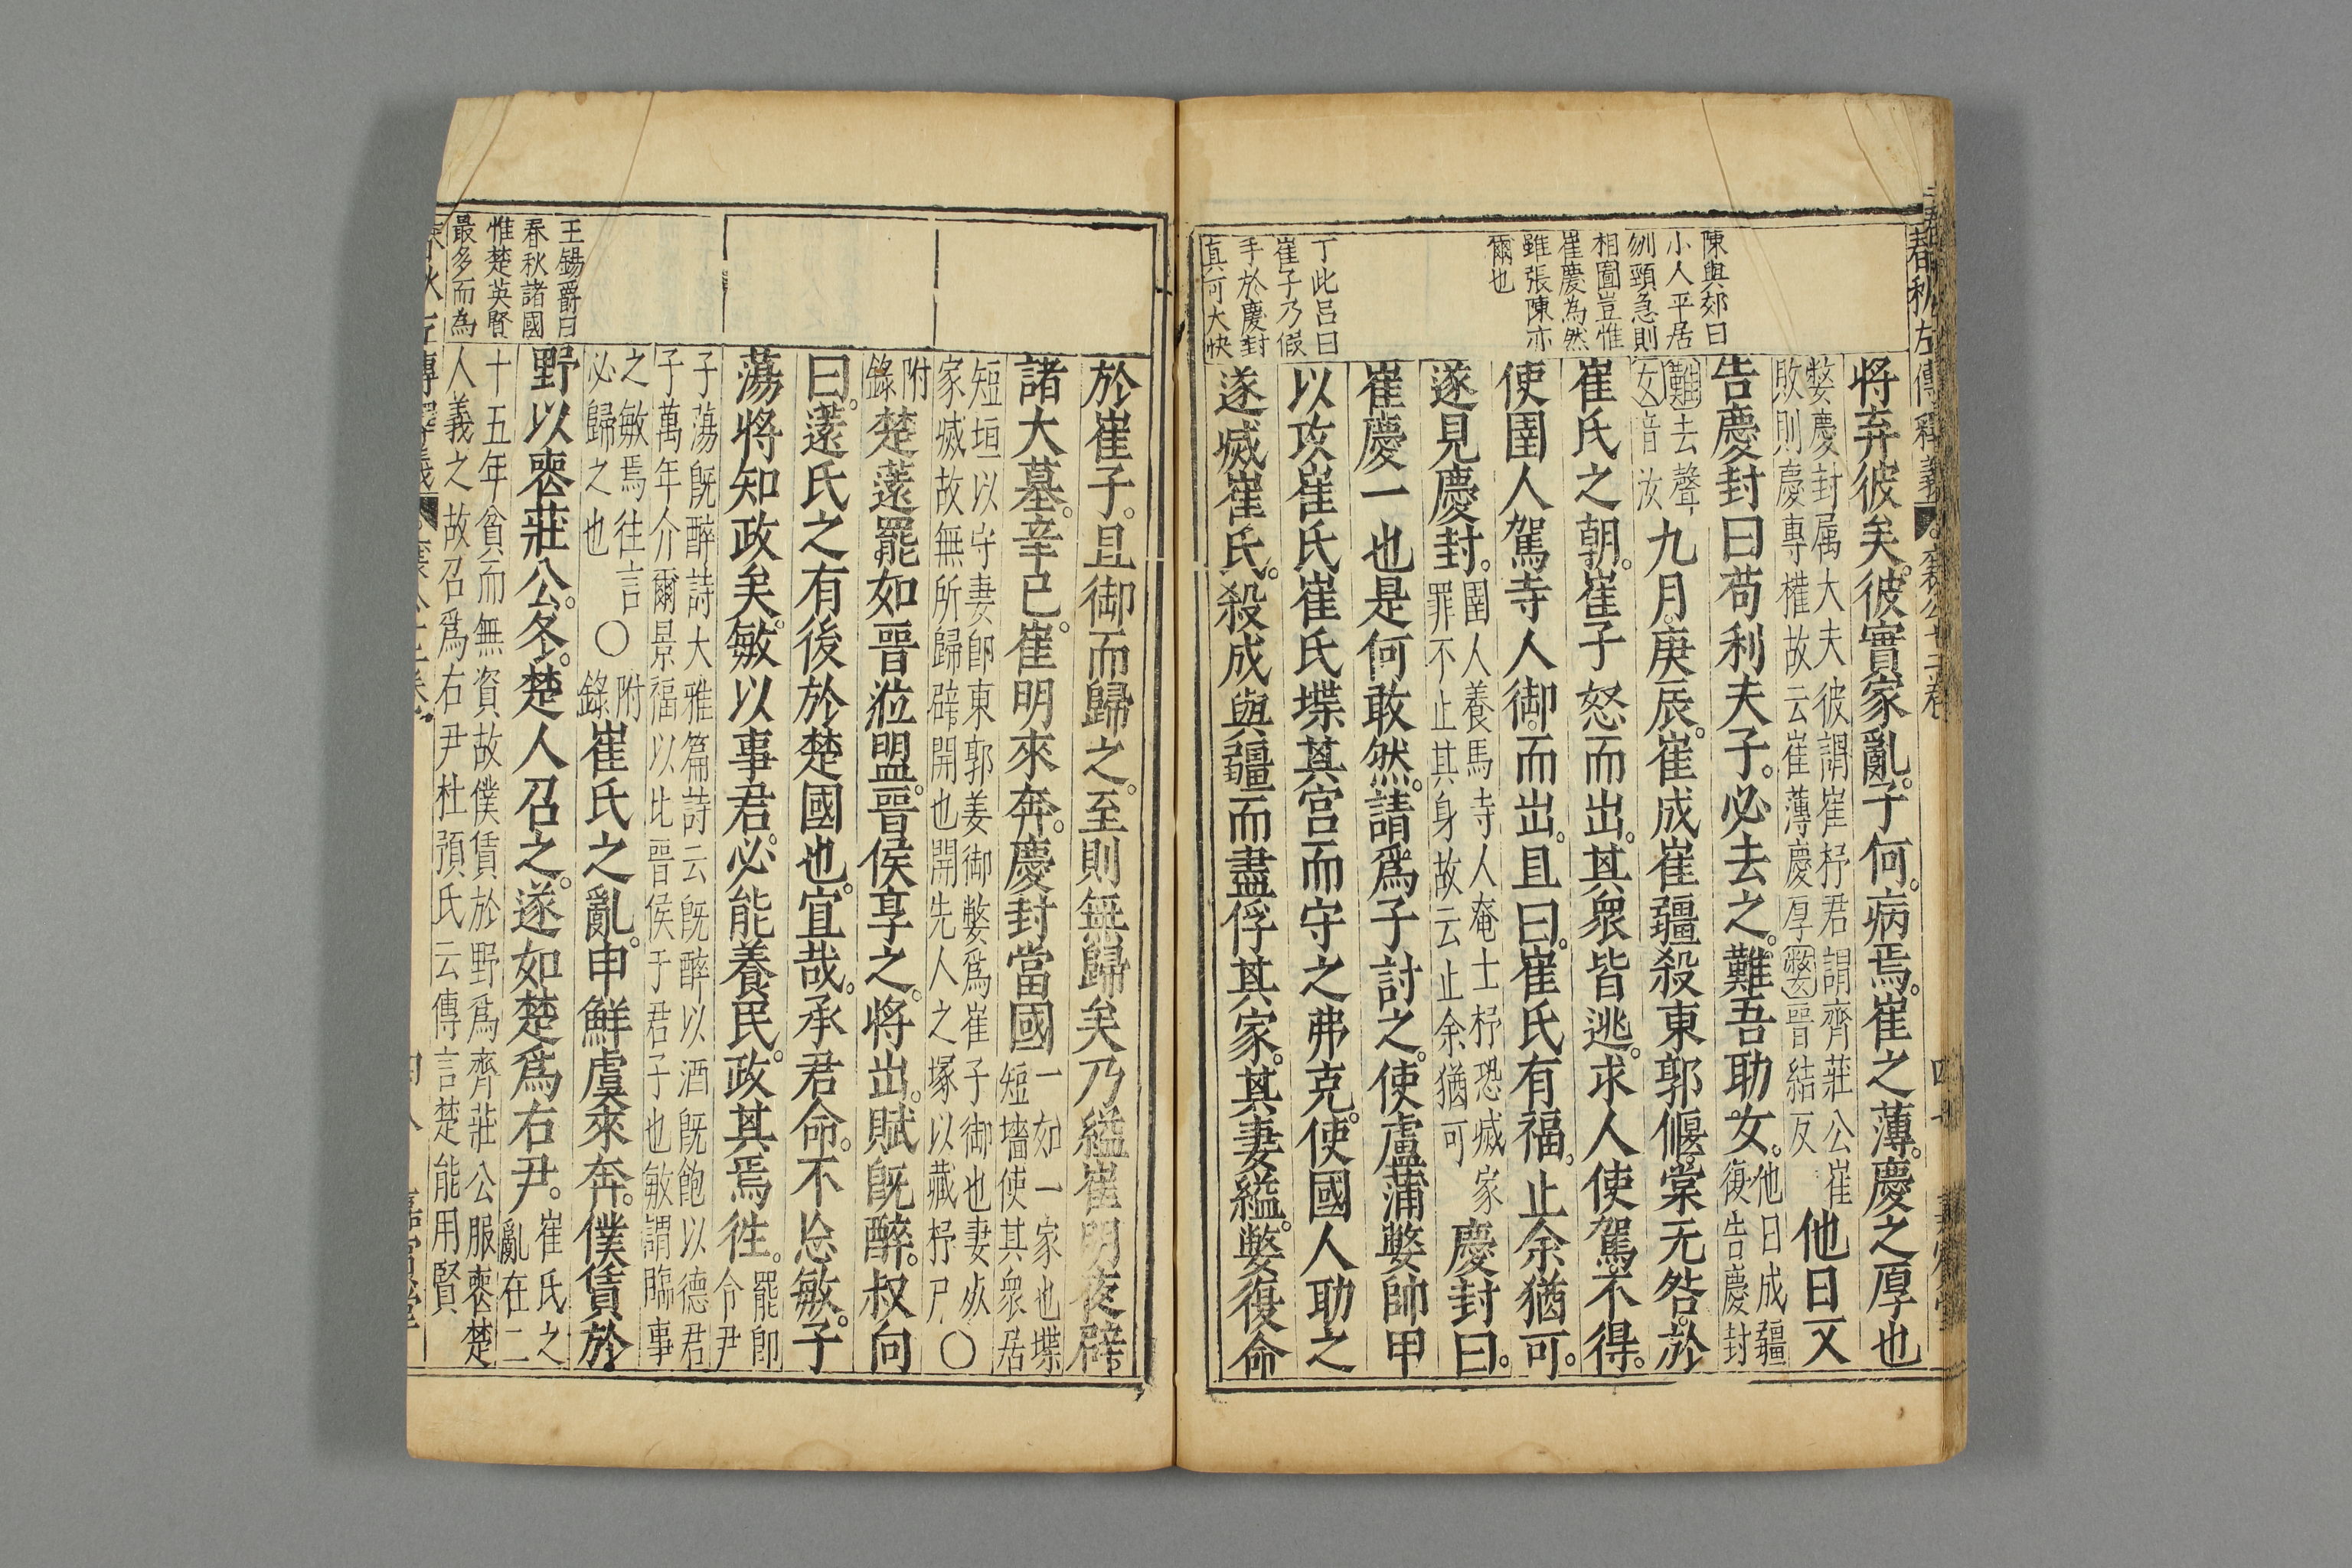 陳與郊曰
小人平居
刎頸急則
相圖豈惟
崔慶為然
雖張陳亦
爾也
丁此呂曰
崔子乃假
手於慶封
真可大快
將弃彼矣。彼實家亂。子何。病焉。崔之薄。慶之厚也
嫳慶封属大夫彼謂崔杼君謂齊莊公崔
敗則慶專權故云崔薄慶厚嫳晉結反
他日又
告慶封曰苟利夫子。必去之。難吾助女。
他日成疆
復告慶封
難去聲
女音汝
九月。庚辰。崔成崔疆殺東郭偃。棠无咎。於
崔氏之朝。崔子怒而出。其衆皆逃。求人使駕。不得。
使圉人駕寺人御。而出。且曰。崔氏有福。止余猶可。
遂見慶封。
圉人養馬寺人奄士杼恐滅家
罪不止其身故云止余猶可
慶封曰。
崔慶一也是何敢然。請爲子討之。使盧蒲嫳帥甲
以攻崔氏崔氏堞其宫而守之弗克。使國人助之
遂滅崔氏。殺成與疆而盡俘其家。其妻縊。嫳復命
王錫爵曰
春秋諸國
惟楚英賢
最多而為
於崔子。且御而歸之。至則無歸矣乃縊崔明夜辟
諸大墓。辛巳。崔明來奔。慶封當國
一如一家也堞
短墻使其衆居
短垣以守妻卽東郭姜御嫳爲崔子御也妻㱕
家滅故無所歸辟開也開先人之塚以藏杼尸
〇
附
錄
楚薳罷如晉涖盟。晉侯享之。將出。賦旣醉。叔向
曰。薳氏之有後於楚國也。宜哉。承君命。不忘敏。子
蕩將知政矣。敏以事君。必能養民。政其焉往。
罷卽
令尹
子蕩旣醉詩大雅篇詩云旣醉以酒旣飽以德君
子萬年介爾景福以比晉侯于君子也敏謂臨事
之敏焉往言
必歸之也
〇
附
錄
崔氏之亂。申鮮虞來奔。僕賃於
野以喪莊公。冬。楚人召之。遂如楚爲右尹。
崔氏之
亂在二
十五年貧而無資故僕賃於野爲齊莊公服喪楚
人義之故召爲右尹杜預氏云傳言楚能用賢